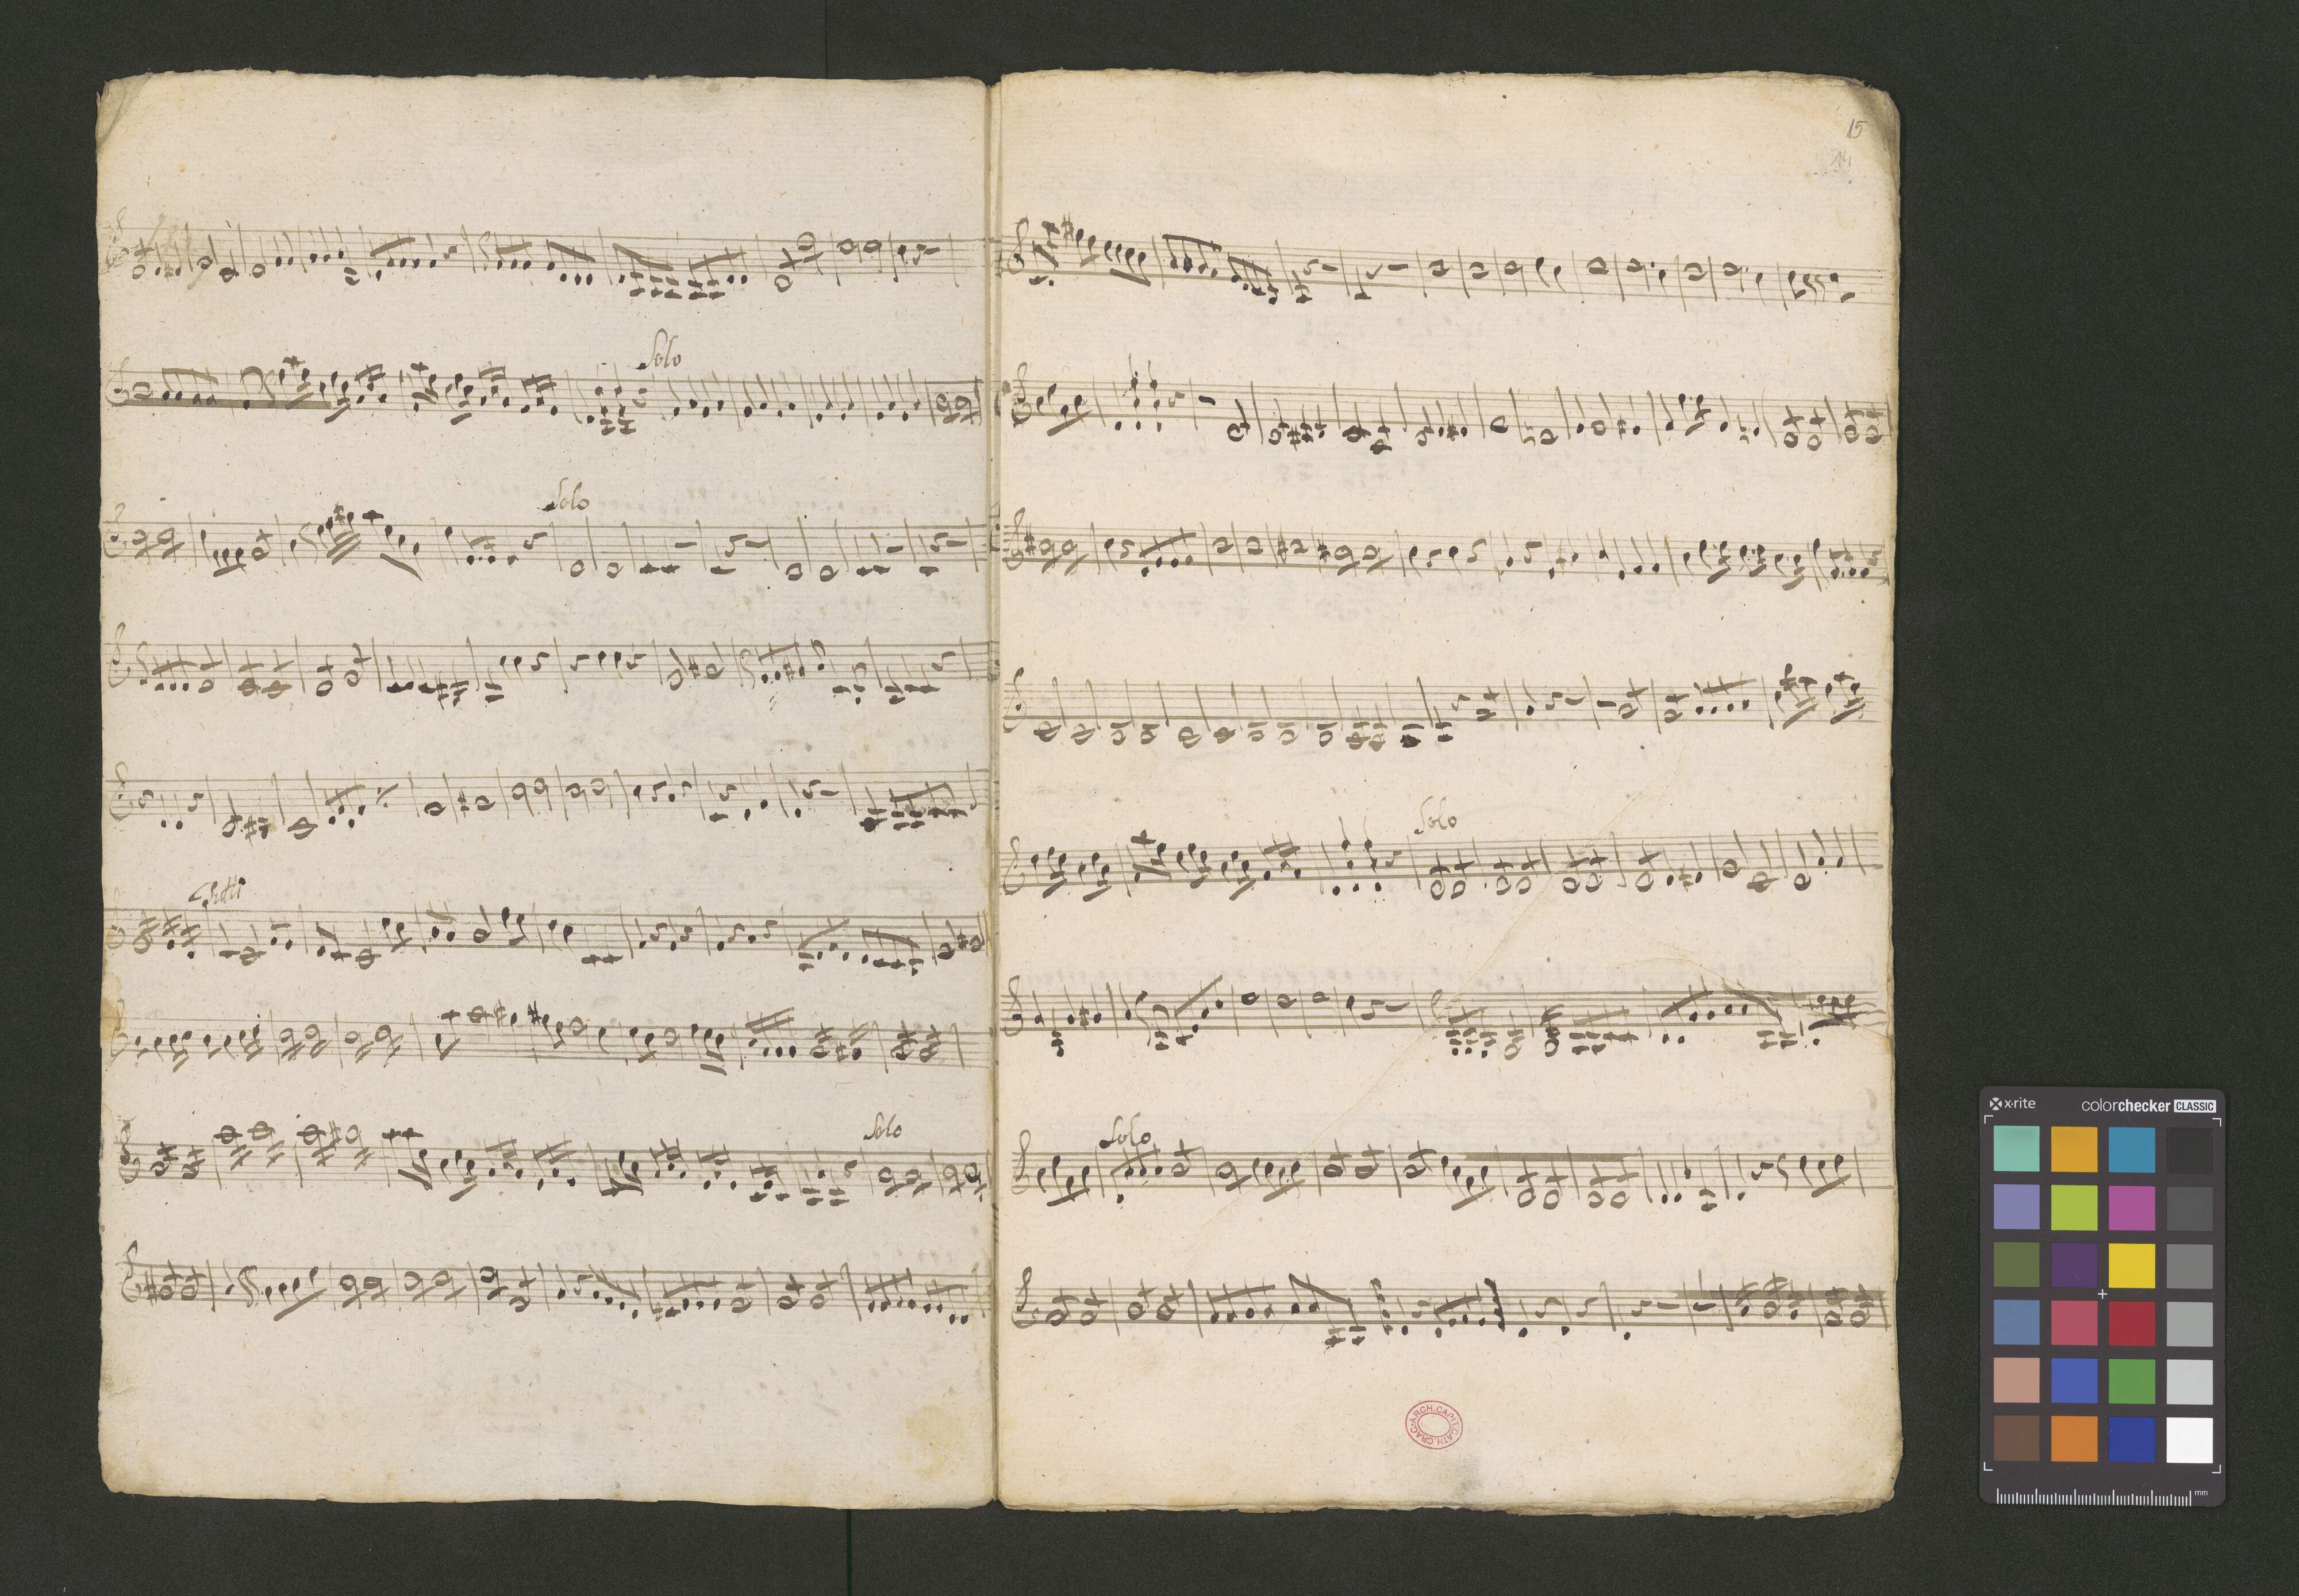 Solo
Solo
Tutti
Solo
15
14
Solo
Solo
ARCH. CAPIT. CATH. CRAC.
x-rite
colorchecker CLASSIC
mm